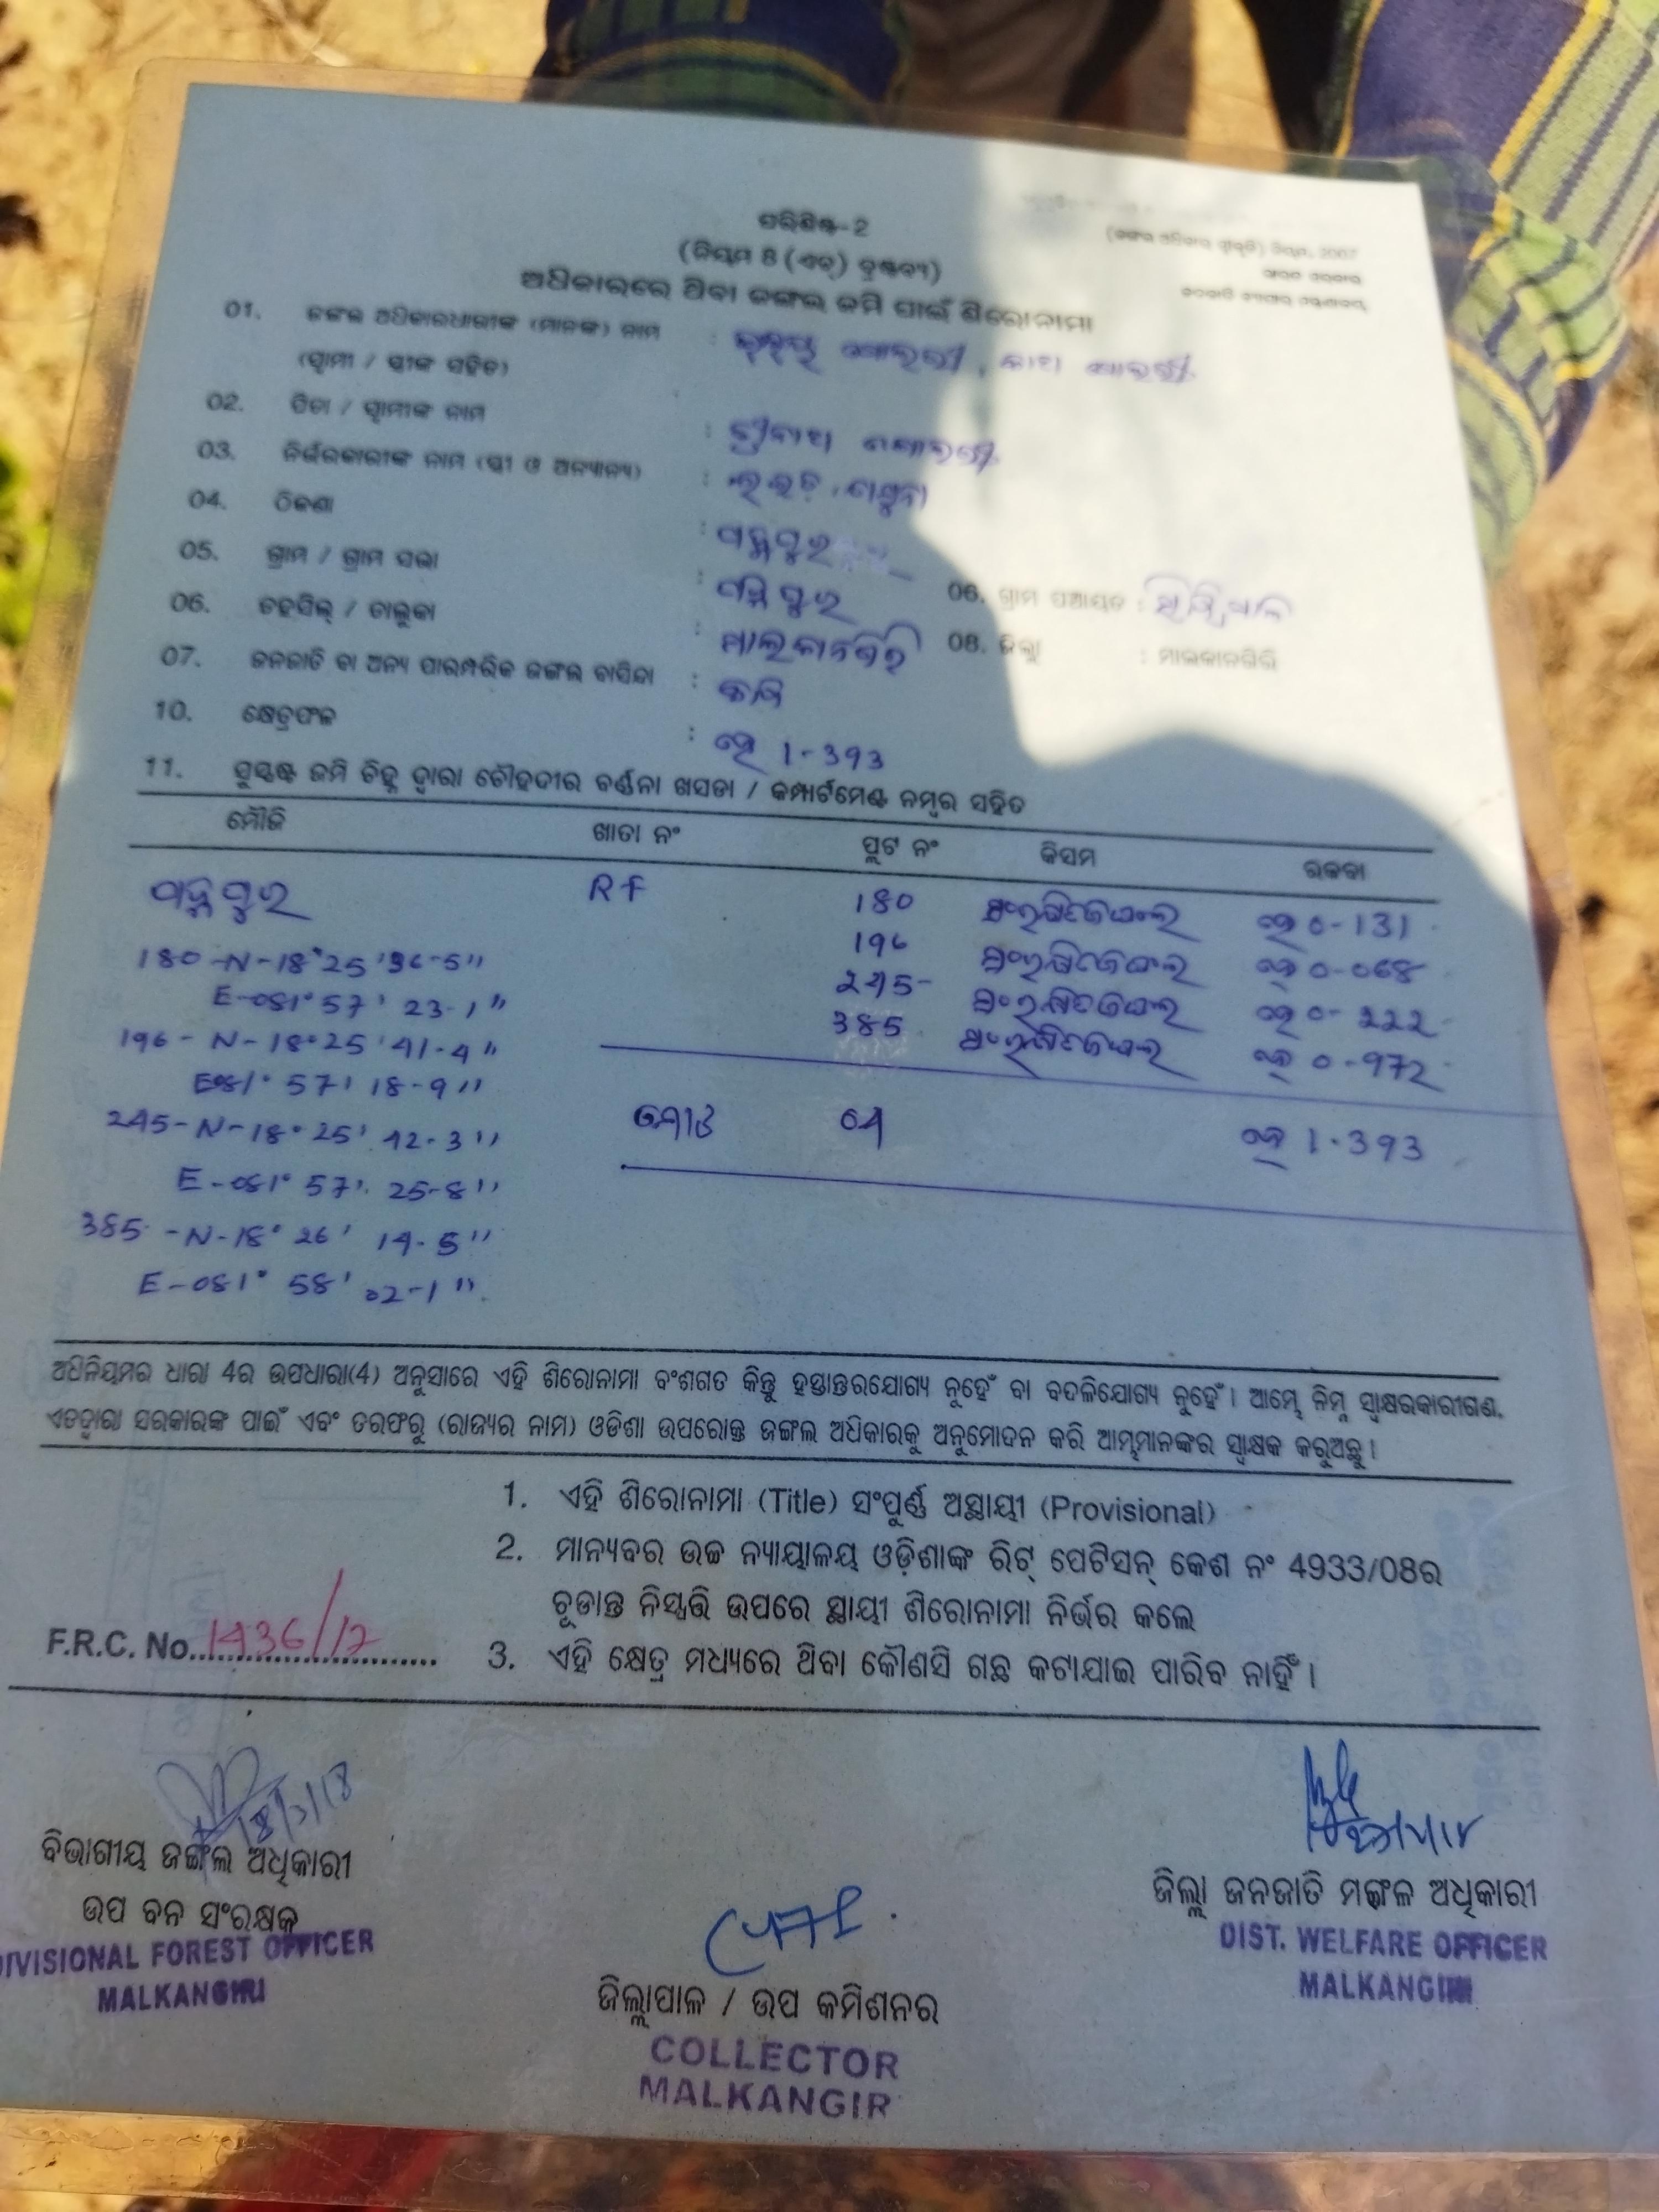 ପରିଶିଷ୍ଟ-2
(ଜଙ୍ଗଲ ଅଧିକାର ସ୍ୱୀକୃତି) ନିୟମ, 2007
(ନିୟମ 8 (ଏଚ୍) ଦ୍ରଷ୍ଟବ୍ୟ)
ଭାରତ ସରକାର
ଅଧିକାରରେ ଥିବା ଜଙ୍ଗଲ ଜମି ପାଇଁ ଶିରୋନାମା
01. ଜଙ୍ଗଲ ଅଧିକାରଧାରୀଙ୍କ (ମାନଙ୍କ) ନାମ :
(ସ୍ୱାମୀ / ସ୍ତ୍ରୀଙ୍କ ସହିତ)
02. ପିତା / ସ୍ୱାମୀଙ୍କ ନାମ :
03. ନିର୍ଭରକାରୀଙ୍କ ନାମ (ସ୍ତ୍ରୀ ଓ ଅନ୍ୟାନ୍ୟ) :
04. ଠିକଣା : ପଦ୍ମପୁର
05. ଗ୍ରାମ / ଗ୍ରାମ ସଭା : ପଦ୍ମପୁର 06. ଗ୍ରାମ ପଞ୍ଚାୟତ :
06. ତହସିଲ୍ / ତାଲୁକା : ମାଲକାନଗିରି 08. ଜିଲ୍ଲା : ମାଲକାନଗିରି
07. ଜନଜାତି ବା ଅନ୍ୟ ପାରମ୍ପରିକ ଜଙ୍ଗଲ ବାସିନ୍ଦା :
10. କ୍ଷେତ୍ରଫଳ : ହେ 1-393
11. ସୁସ୍ପଷ୍ଟ ଜମି ଚିହ୍ନ ଦ୍ୱାରା ଚୌହଦୀର ବର୍ଣ୍ଣନା ଖସଡା / କମ୍ପାର୍ଟମେଣ୍ଟ ନମ୍ବର ସହିତ
ମୌଜି ଖାତା ନଂ ପ୍ଲଟ ନଂ କିସମ ରକବା
ପଦ୍ମପୁର RF 180 ସଂରକ୍ଷିତ ଜଙ୍ଗଲ ହେ 0-131
180-N-18°25'36-5" 196 ସଂରକ୍ଷିତ ଜଙ୍ଗଲ ହେ 0-068
E-081°57' 23-1" 245 ସଂରକ୍ଷିତ ଜଙ୍ଗଲ ହେ 0-222
196-N-18°25'41-4" 385 ସଂରକ୍ଷିତ ଜଙ୍ଗଲ ହେ 0-972
E081° 57' 18-9"
245-N-18°25' 42-3" ମୋଟ ୦୪ ହେ 1.393
E-081° 57' 25-8"
385-N-18° 26' 14-5"
E-081° 58' 02-1"
ଅଧିନିୟମର ଧାରା 4ର ଉପଧାରା(4) ଅନୁସାରେ ଏହି ଶିରୋନାମା ବଂଶଗତ କିନ୍ତୁ ହସ୍ତାନ୍ତରଯୋଗ୍ୟ ନୁହେଁ ବା ବଦଳିଯୋଗ୍ୟ ନୁହେଁ । ଆମ୍ଭେ ନିମ୍ନ ସ୍ୱାକ୍ଷରକାରୀଗଣ,
ଏତଦ୍ୱାରା ସରକାରଙ୍କ ପାଇଁ ଏବଂ ତରଫରୁ (ରାଜ୍ୟର ନାମ) ଓଡିଶା ଉପରୋକ୍ତ ଜଙ୍ଗଲ ଅଧିକାରକୁ ଅନୁମୋଦନ କରି ଆମ୍ଭମାନଙ୍କର ସ୍ୱାକ୍ଷକ କରୁଅଛୁ ।
1. ଏହି ଶିରୋନାମା (Title) ସଂପୁର୍ଣ୍ଣ ଅସ୍ଥାୟୀ (Provisional)
2. ମାନ୍ୟବର ଉଚ୍ଚ ନ୍ୟାୟାଳୟ ଓଡ଼ିଶାଙ୍କ ରିଟ୍ ପେଟିସନ୍ କେଶ ନଂ 4933/08ର
ଚୂଡାନ୍ତ ନିସ୍ପତ୍ତି ଉପରେ ସ୍ଥାୟୀ ଶିରୋନାମା ନିର୍ଭର କଲେ
F.R.C. No. 1436/17 3. ଏହି କ୍ଷେତ୍ର ମଧ୍ୟରେ ଥିବା କୌଣସି ଗଛ କଟାଯାଇ ପାରିବ ନାହିଁ ।
ବିଭାଗୀୟ ଜଙ୍ଗଲ ଅଧିକାରୀ
ଉପ ବନ ସଂରକ୍ଷକ
DIVISIONAL FOREST OFFICER
MALKANGIRI
ଜିଲ୍ଲାପାଳ / ଉପ କମିଶନର
COLLECTOR
MALKANGIR
ଜିଲ୍ଲା ଜନଜାତି ମଙ୍ଗଳ ଅଧିକାରୀ
DIST. WELFARE OFFICER
MALKANGIRI